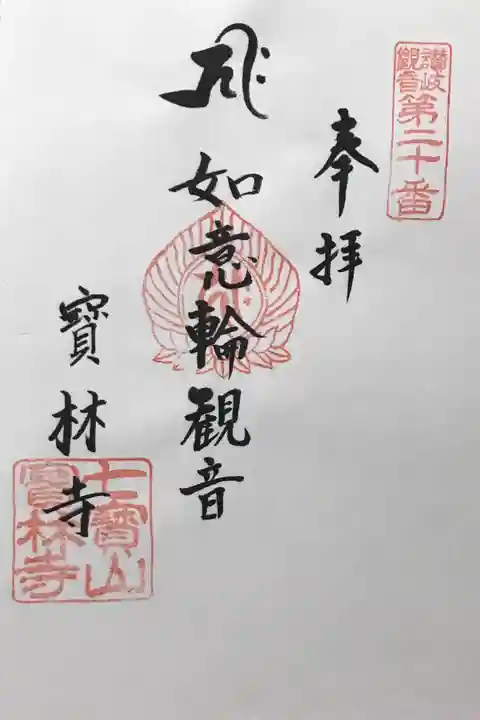 讃岐
観音
第二十番
奉拝
如意輪観音
寳林寺
七寳山
寳林寺